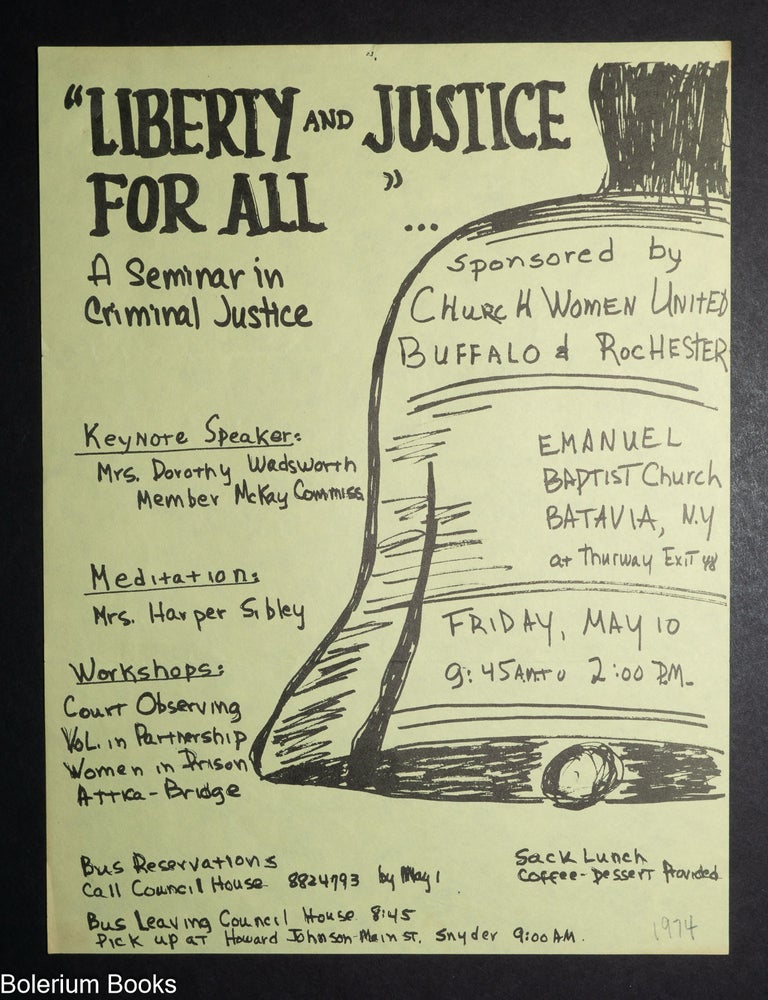 “LIBERTY AND JUSTICE
FOR ALL ” ...
A Seminar in
Criminal Justice
Sponsored by
CHURCH WOMEN UNITED
BUFFALO & ROCHESTER
Keynote Speaker:
Mrs. Dorothy Wadsworth
Member McKay Commiss
EMANUEL
BAPTIST Church
BATAVIA, N.Y
at Thurway Exit 48
Meditation:
Mrs. Harper Sibley
FRIDAY, MAY 10
9:45 AM to 2:00 P.M.
Workshops:
Court Observing
Vol. in Partnership
Women in Prison
Attica - Bridge
Bus Reservations
Call Council House 8824793 by May 1
Sack Lunch
Coffee - Dessert Provided
Bus Leaving Council House 8:45
Pick up at Howard Johnson-Main St. Snyder 9:00 AM.
1974
Bolerium Books